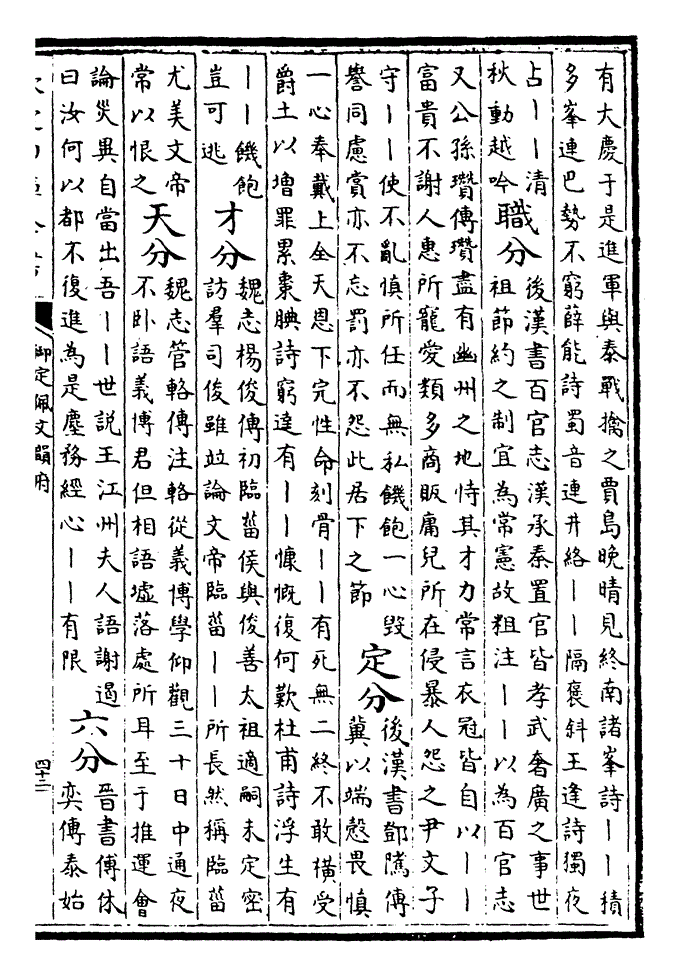 有大慶于是進軍與泰戰擒之賈島晚晴見終南諸峯詩丨丨積
多峯連巴勢不窮薛能詩蜀音連井絡丨丨隔褒斜王逢詩獨夜
占丨丨清
秋動越吟
職分
後漢書百官志漢承秦置官皆孝武奢廣之事世
祖節約之制宜為常憲故粗注丨丨以為百官志
又公孫瓚傳瓚盡有幽州之地恃其才力常言衣冠皆自以丨丨
富貴不謝人惠所寵愛類多商販庸兒所在侵暴人怨之尹文子
守丨丨使不亂慎所任而無私饑飽一心毁
譽同慮賞亦不忘罰亦不怨此居下之節
定分
後漢書鄧騭傳
冀以端慤畏慎
一心奉戴上全天恩下完性命刻骨丨丨有死無二終不敢橫受
爵土以增罪累棗腆詩窮達有丨丨慷慨復何歎杜甫詩浮生有
丨丨饑飽
豈可逃
才分
魏志楊俊傳初臨菑侯與俊善太祖適嗣未定密
訪羣司俊雖竝論文帝臨菑丨丨所長然稱臨菑
尤美文帝
常以恨之
天分
魏志管輅傳注輅從義博學仰觀三十日中通夜
不卧語義博君但相語墟落處所耳至于推運會
論災異自當出吾丨丨世説王江州夫人語謝遏
曰汝何以都不復進為是塵務經心丨丨有限
六分
晉書傅休
奕傳泰始
御定佩文韻府
四十二